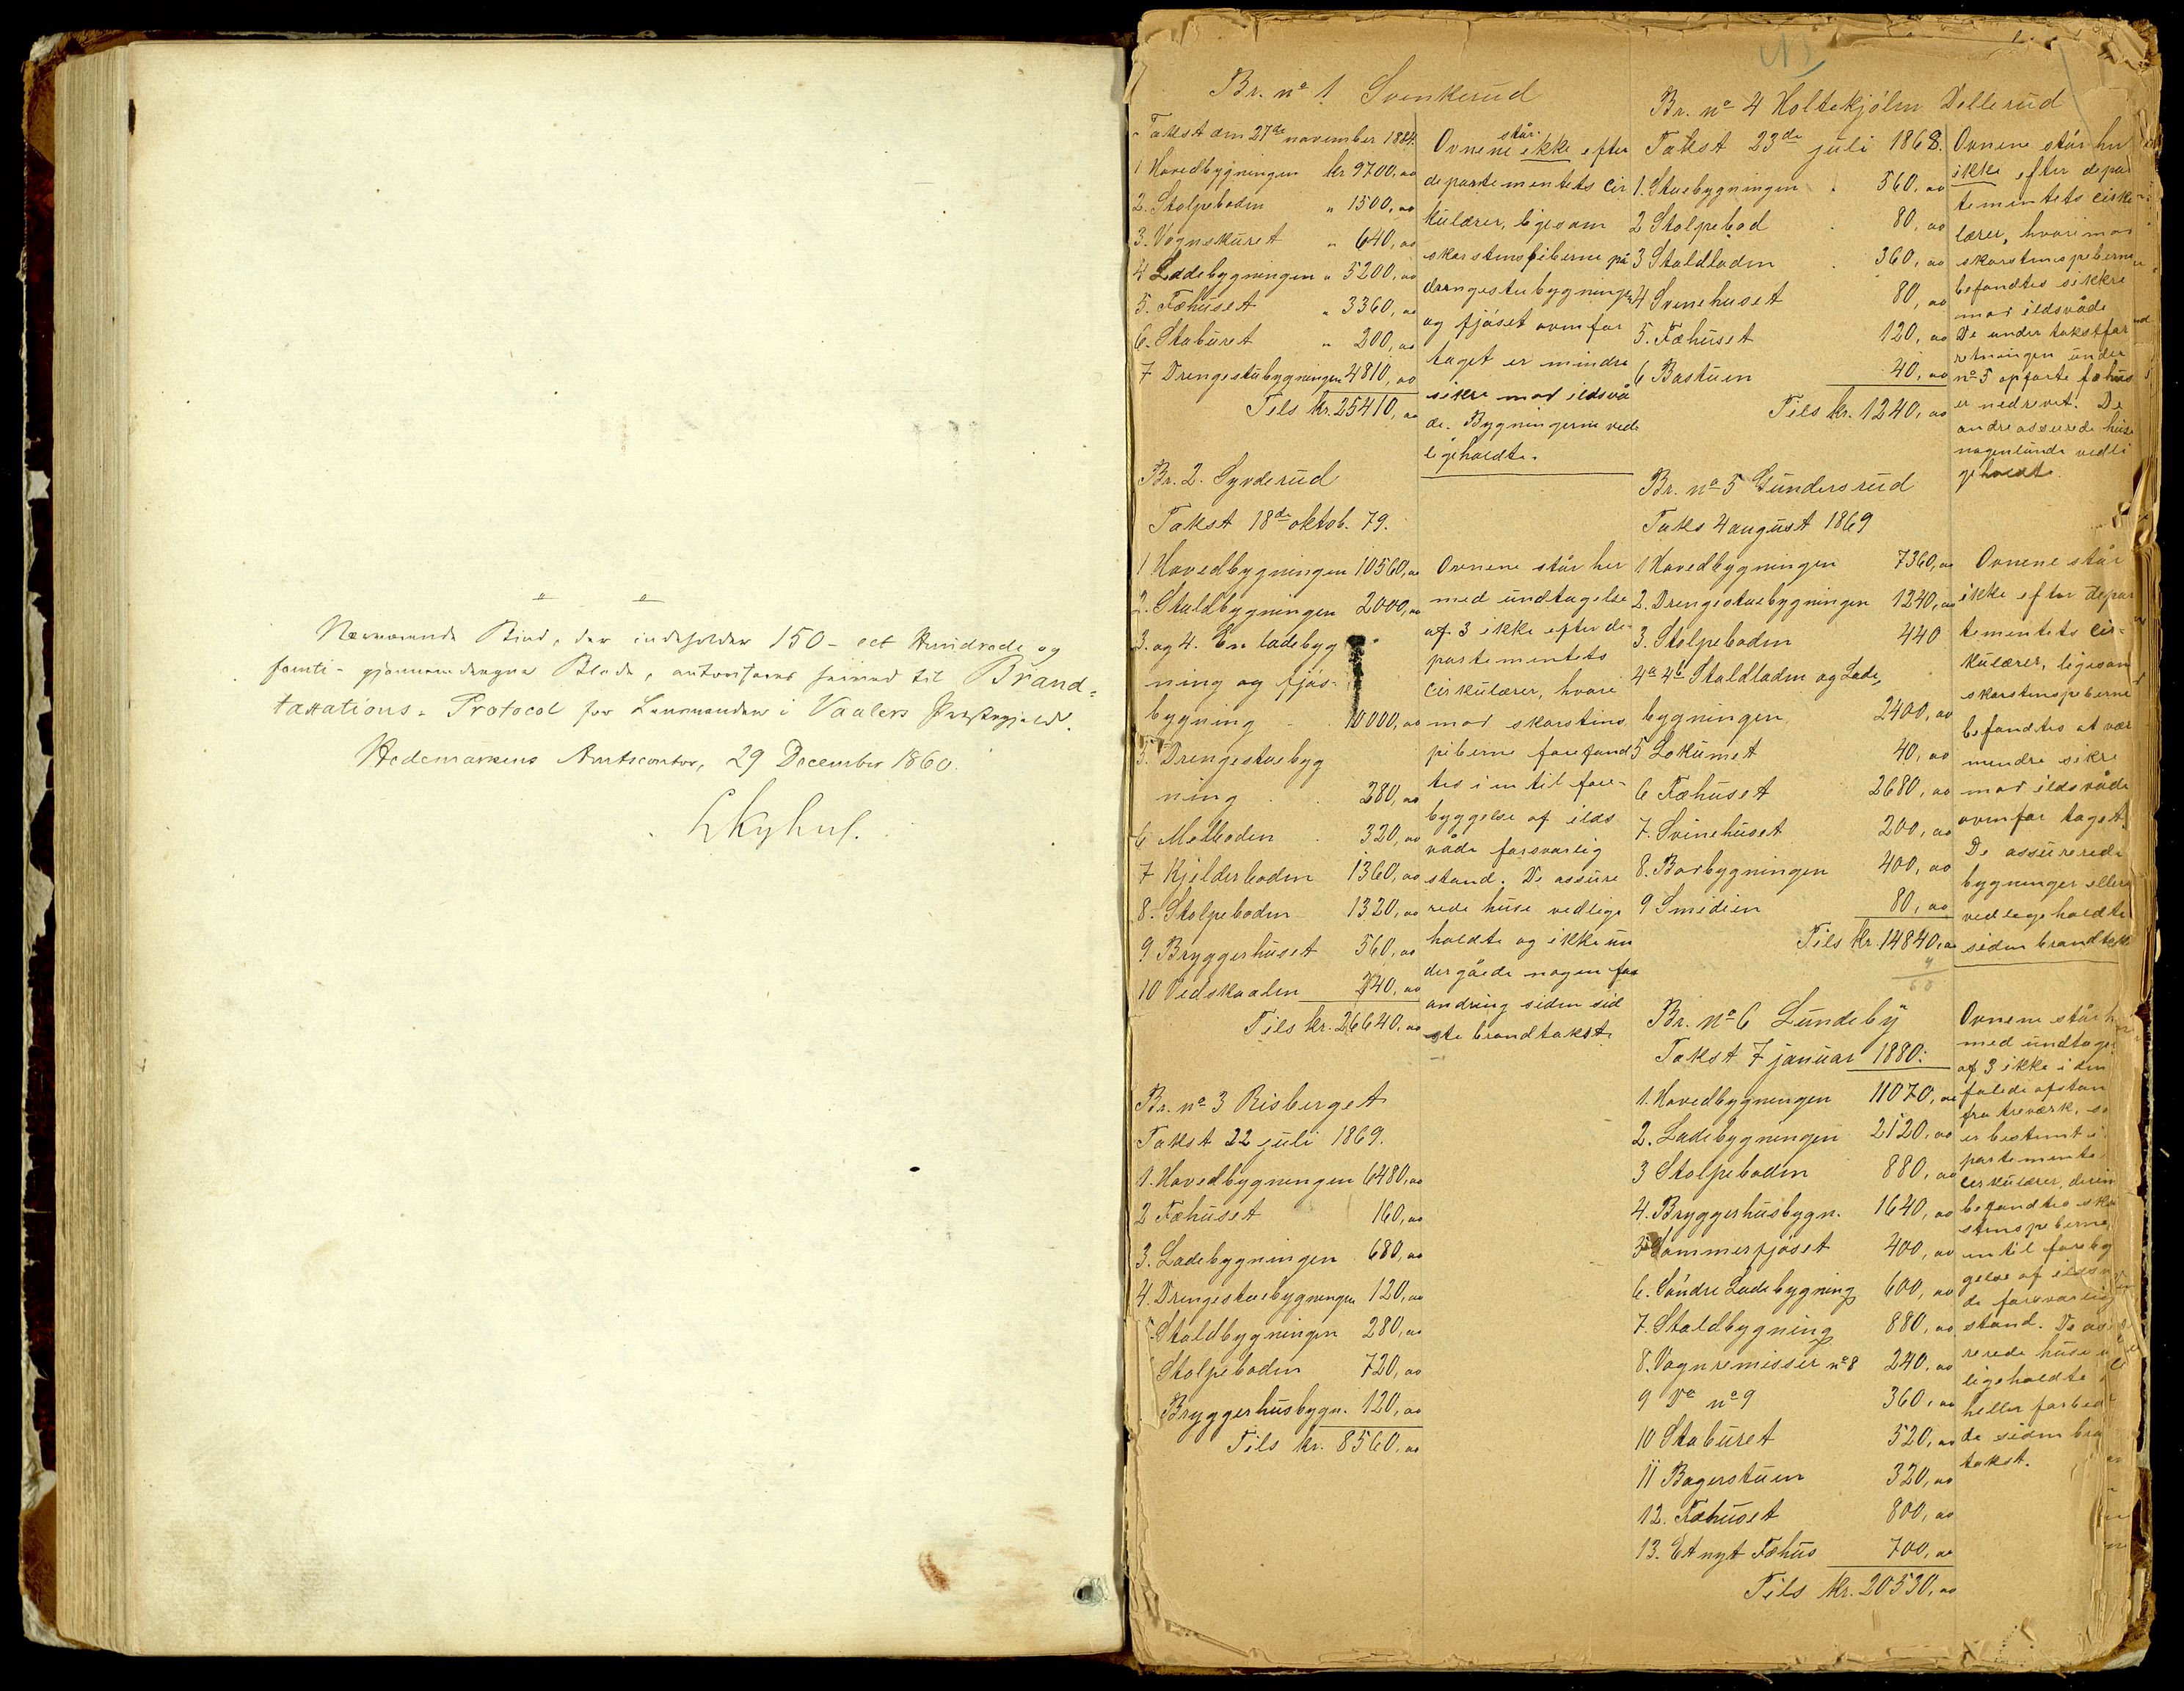 " "
Nærværende Bind, der indeholder 150 - eet Hundrede og
femti - gjennemdragne Blade, autoriseres herved til Brand-
taxations-Protocol for Lensmanden i Vaalers Præstegjeld.
Hedemarkens Amtscontor, 29 December 1860.
Br. no 1 Svenkerud
Takst den 27de november 1884.
1 Hovedbygningen kr 9700,00
2. Stolpeboden " 1500,00
3. Vognskuret " 640,00
4 Ladebygningen " 5200,00
5. Fæhuset " 3360,00
6. Staburet " 200,00
7 Drengestubygningen 4810,00
Tils kr. 25410,00
står
Ovnene ikke efter
departementets cir
kulærer, ligesom
skorstenspiberne på
drengestubygningen
og fjøset ovenfor
taget er mindre
sikre mod ildsvå
de. Bygningerne ved
ligeholdte.
Br. 2. Syverud
Takst 18de oktob. 79.
1 Hovedbygningen 10560,00
2. Staldbygningen 2000,00
3. og 4. En ladebyg
ning og fjøs-
bygning 10000,00
5. Drengestuebyg
ning 280,00
6 Melboden 320,00
7 Kjelderboden 1360,00
8. Stolpeboden 1320,00
9 Bryggerhuset 560,00
10 Vedskaalen 240,00
Tils kr. 26640,00
Ovnene står her
med undtagelse
af 3 ikke efter de-
partementets
cirkulærer, hvori
mod skorstens
piberne forefand
tes i en til fore-
byggelse af ilds
våde forsvarlig
stand. De assure
rede huse vedlige
holdte og ikke un
dergåede nogen for
andring siden sid
ste brandtakst.
Br. no 3 Risberget
Takst 22 juli 1869.
1. Hovedbygningen 6480,00
2 Fæhuset 160,00
3. Ladebygningen 680,00
4. Drengestuebygningen 120,00
Staldbygningen 280,00
Stolpeboden 720,00
Bryggerhusbygn. 120,00
Tils kr. 8560,00
Br. no 4 Holtekjølen Vellerud
Takst 23de juli 1868.
1. Stuebygningen 560,00
2 Stolpebod 80,00
3 Staldladen 360,00
4 Svinehuset 80,00
5. Fæhuset 120,00
6 Bastuen 40,00
Tils kr. 1240,00
Ovnene står her
ikke efter depar
tementets cirku
lærer, hvorimod
skorstenspiberne
befandtes sikkre
mod ildsvåde
De under takstfor
retningen under
no 5 opførte fæhus
er nedrevet. De
andre assurede huse
nogenlunde vedli
geholdt.
Br. no 5 Gundersrud
Taks 4 august 1869
1 Hovedbygningen 7360,00
2. Drengestuebygningen 1240,00
3. Stolpeboden 440
4a 4b Staldladen og Lade,
bygningen 2400,00
5 Lokumet 40,00
6 Fæhuset 2680,00
7. Svinehuset 200,00
8. Borbygningen 400,00
9 Smedien 80,00
Tils kr. 14840,00
Ovnene står
ikke efter depar
tementets cir-
kulærer, ligesom
skorstenspiberne
befandtes at vær
mindre sikre
mod ildsvåde
ovenfor taget.
De assurerede
bygninger ellers
vedligeholdte
siden brandtakst
Br. no 6 Lundeby
Takst 7 januar 1880:
1. Hovedbygningen 11070,00
2. Ladebygningen 2120,00
3 Stolpeboden 880,00
4. Bryggerhusbygn. 1640,00
5 Sommerfjøset 400,00
6. Søndre Ladebygning 600,00
7. Staldbygning 880,00
8. Vognremisser no 8 240,00
9 Do no 9 360,00
10 Staburet 520,00
11 Bagerstuen 320,00
12. Fæhuset 800,00
13. Et nyt Fæhus 700,00
Tils kr. 20530,00
Ovnene står h
med undtage
af 3 ikke i den
falede afstan
fra treværk, so
er bestemt i
partemente
cirkulærer, derim
befandtes sko
stenspiberne
en til foreby
gelse af ildsv
de forsvarlig
stand. De as
rerede huse v
ligeholdte
heller forbed
de siden bra
takst.